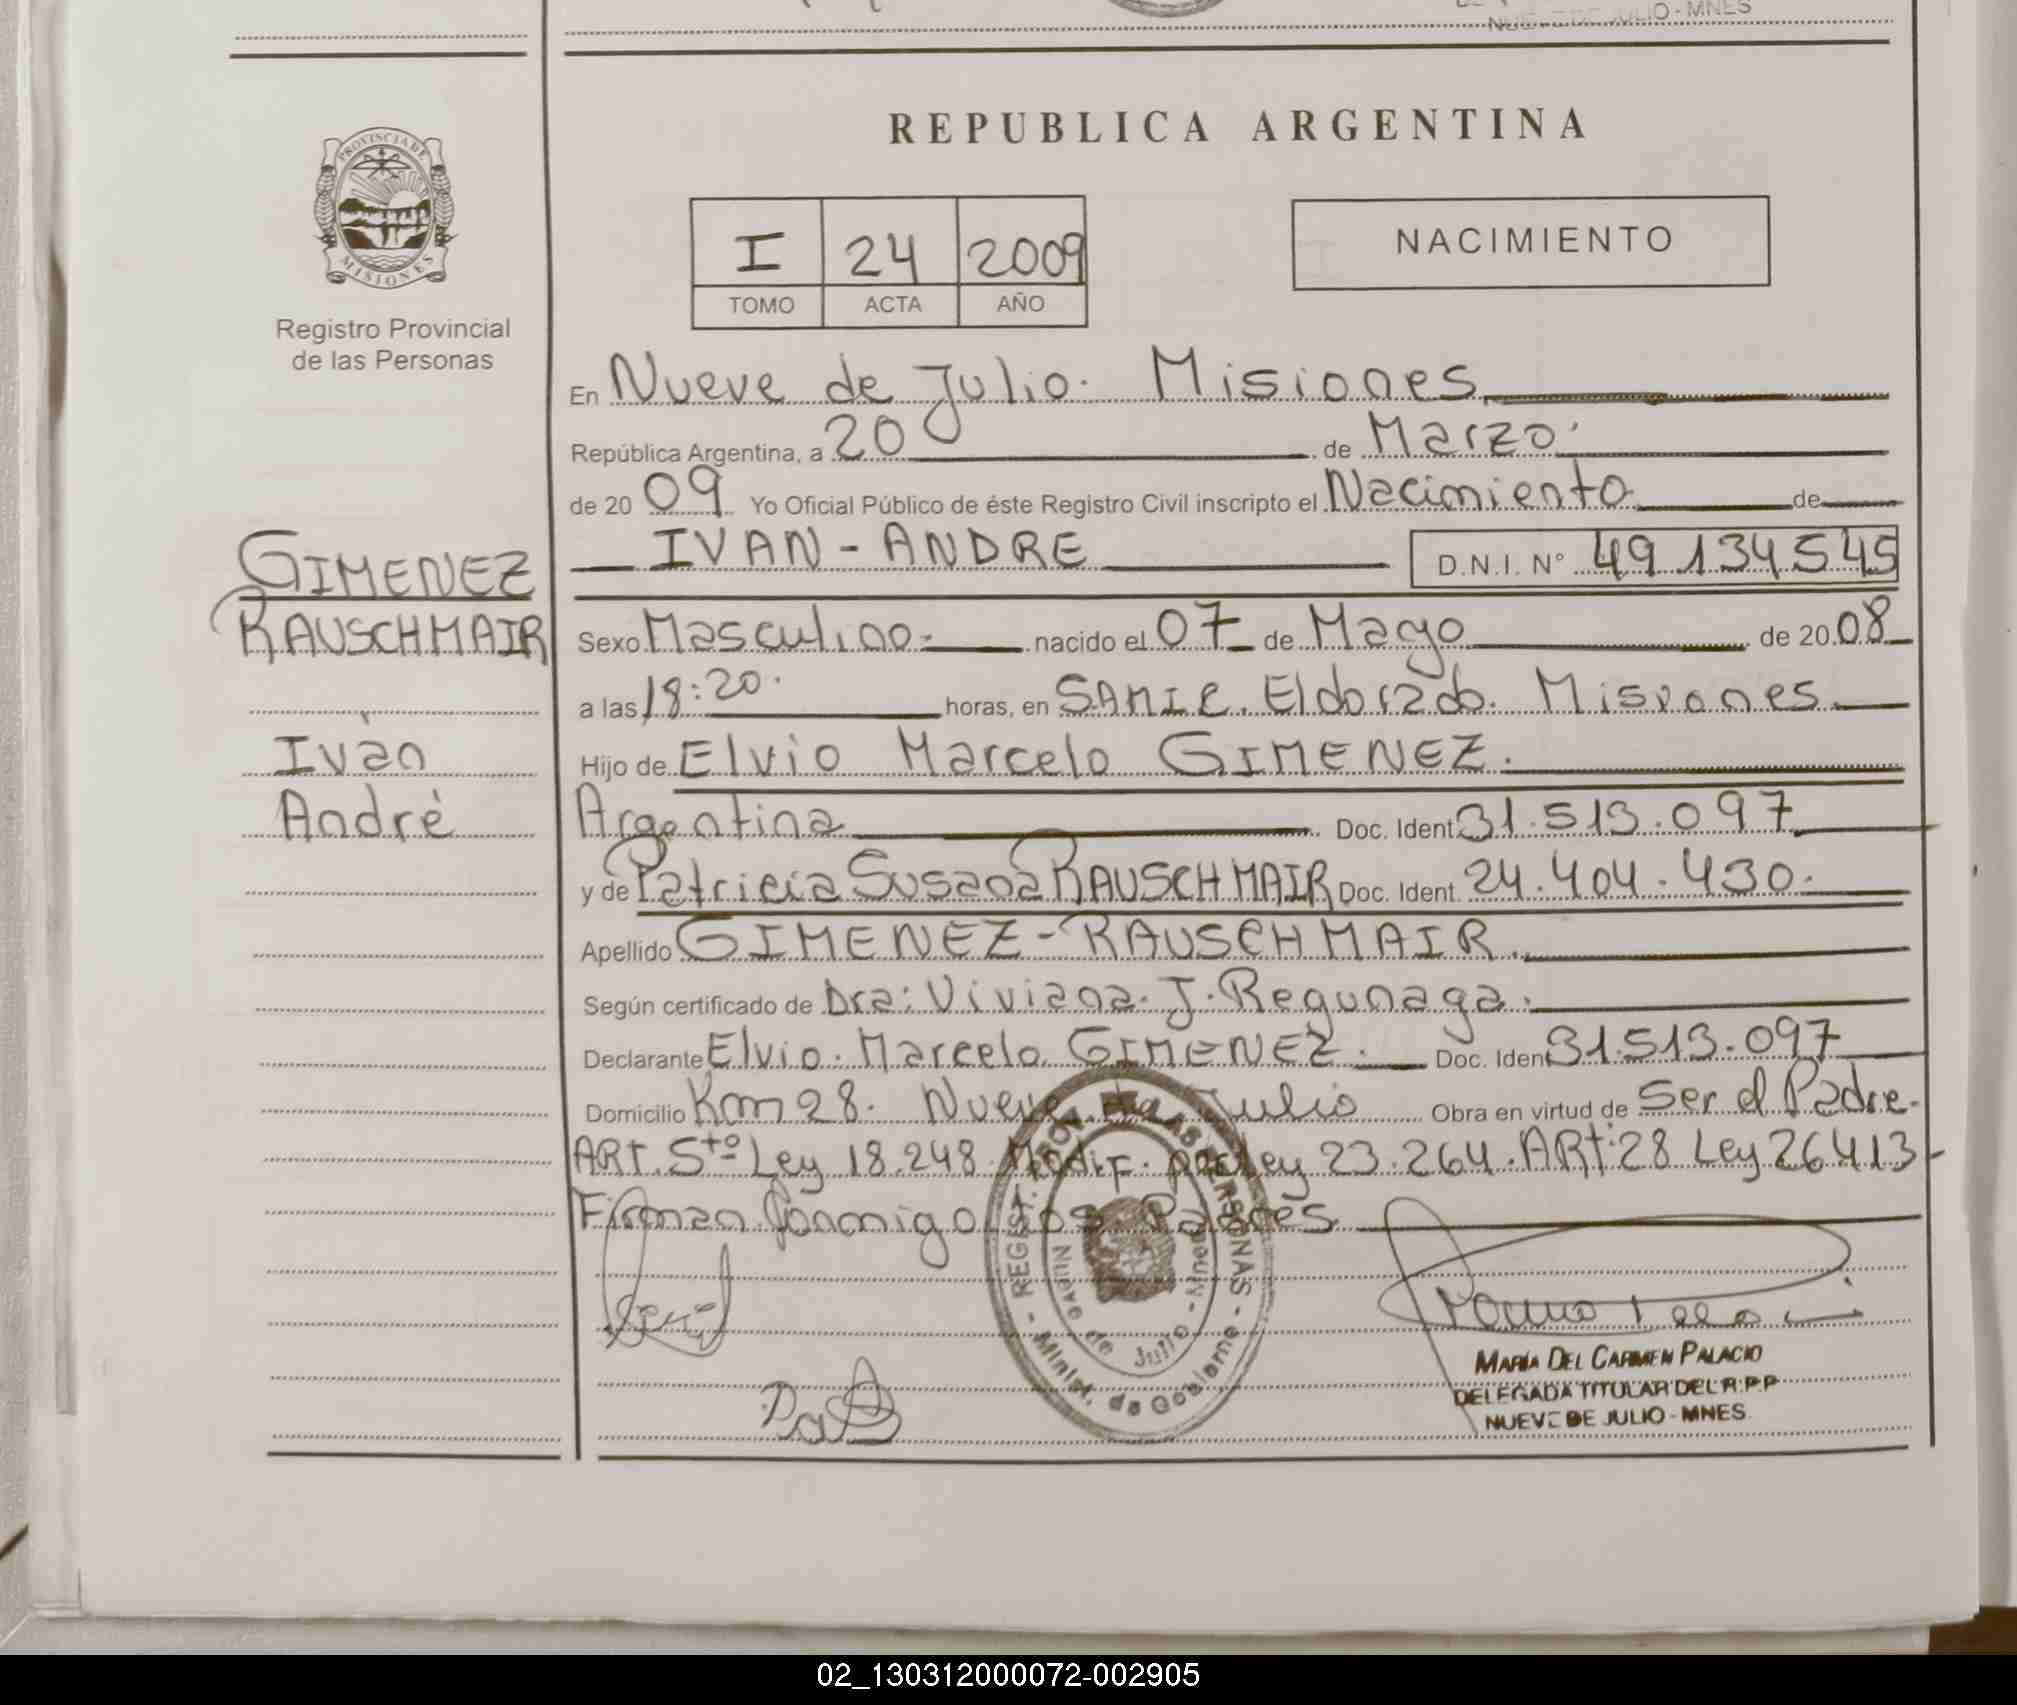 NUEVE DE JULIO - MNES
REPUBLICA ARGENTINA
PROVINCIA DE
MISIONES
Registro Provincial
de las Personas
I 24 2009
TOMO ACTA AÑO
NACIMIENTO
En Nueve de Julio. Misiones
República Argentina, a 20 de Marzo.
de 20 09 Yo Oficial Público de éste Registro Civil inscripto el Nacimiento de
IVAN - ANDRE D.N.I. Nº 49134545
GIMENEZ
RAUSCHMAIR
Iván
André
Sexo Masculino. nacido el 07 de Mayo de 20 08
a las 18:20. horas, en SAMIC. Eldorado. Misiones.
Hijo de Elvio Marcelo GIMENEZ.
Argentina Doc. Ident. 31.513.097
y de Patricia Susana RAUSCHMAIR Doc. Ident. 24.404.430.
Apellido GIMENEZ - RAUSCHMAIR.
Según certificado de Dra: Viviana. J. Regunaga.
Declarante Elvio. Marcelo GIMENEZ. Doc. Ident. 31.513.097
Domicilio Km 28. Nueve de Julio Obra en virtud de Ser el Padre.
ART. 5to Ley 18.248 Modif. por Ley 23.264. ARt: 28 Ley 26413
Firman Conmigo los Padres
REGIST. PROV. DE LAS PERSONAS
Nueve de Julio - Mnes
Minist. de Gobierno
MARÍA DEL CARMEN PALACIO
DELEGADA TITULAR DEL R.P.P
NUEVE DE JULIO - MNES.
02_130312000072-002905